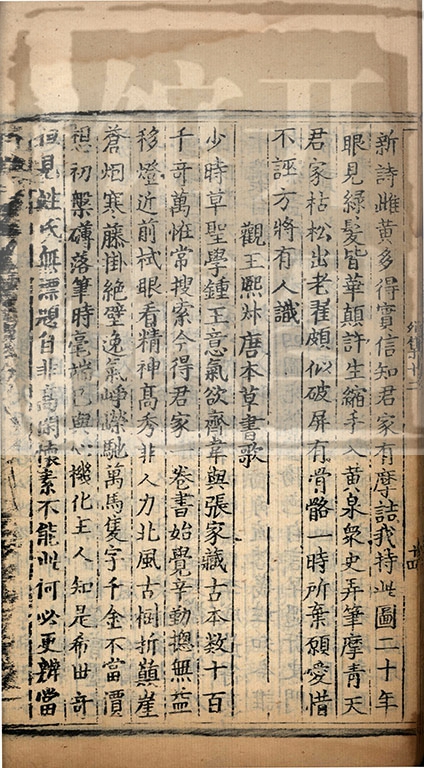 新詩雌黄多得實信知君家有摩詰我持此圖二十年
眼見緑髮皆華顛許生縮手入黄泉衆史弄筆摩青天
君家枯松出老翟頗似破屏有骨骼一時所棄願愛惜
不誣方將有人識
觀王熙叔唐本草書歌
少時草聖學鍾王意氣欲齊韋與張家藏古本數十百
千奇萬怪常搜索今得君家一卷書始覺辛勤揔無益
移燈近前拭眼看精神髙秀非人力北風古樹折巔崖
蒼烟寒藤掛絶壁逸氣崢嶸馳萬馬隻字千金不當價
想初槃礴落筆時毫端已與心機化主人知是希世奇
但見姓氏無標題自非髙閑懷素不能此何必更辨當